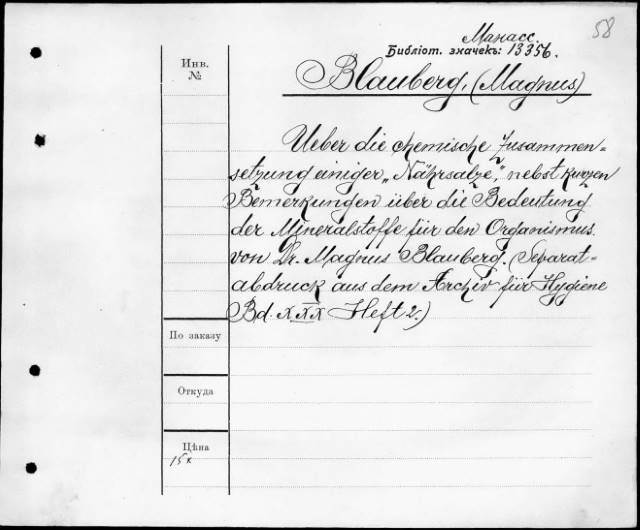 58
Манасс.
Библіот. значекъ: 13356.
Инв.
№
Blauberg, (Magnus)
Ueber die chemische Zusammen=
setzung einiger „Nährsalze", nebst kurzen
Bemerkungen über die Bedeutung
der Mineralstoffe für den Organismus.
von Dr. Magnus Blauberg. (Separat=
abdruck aus dem Archiv für Hygiene
Bd. XXX Heft 2.)
По заказу
Откуда
Цѣна
15к